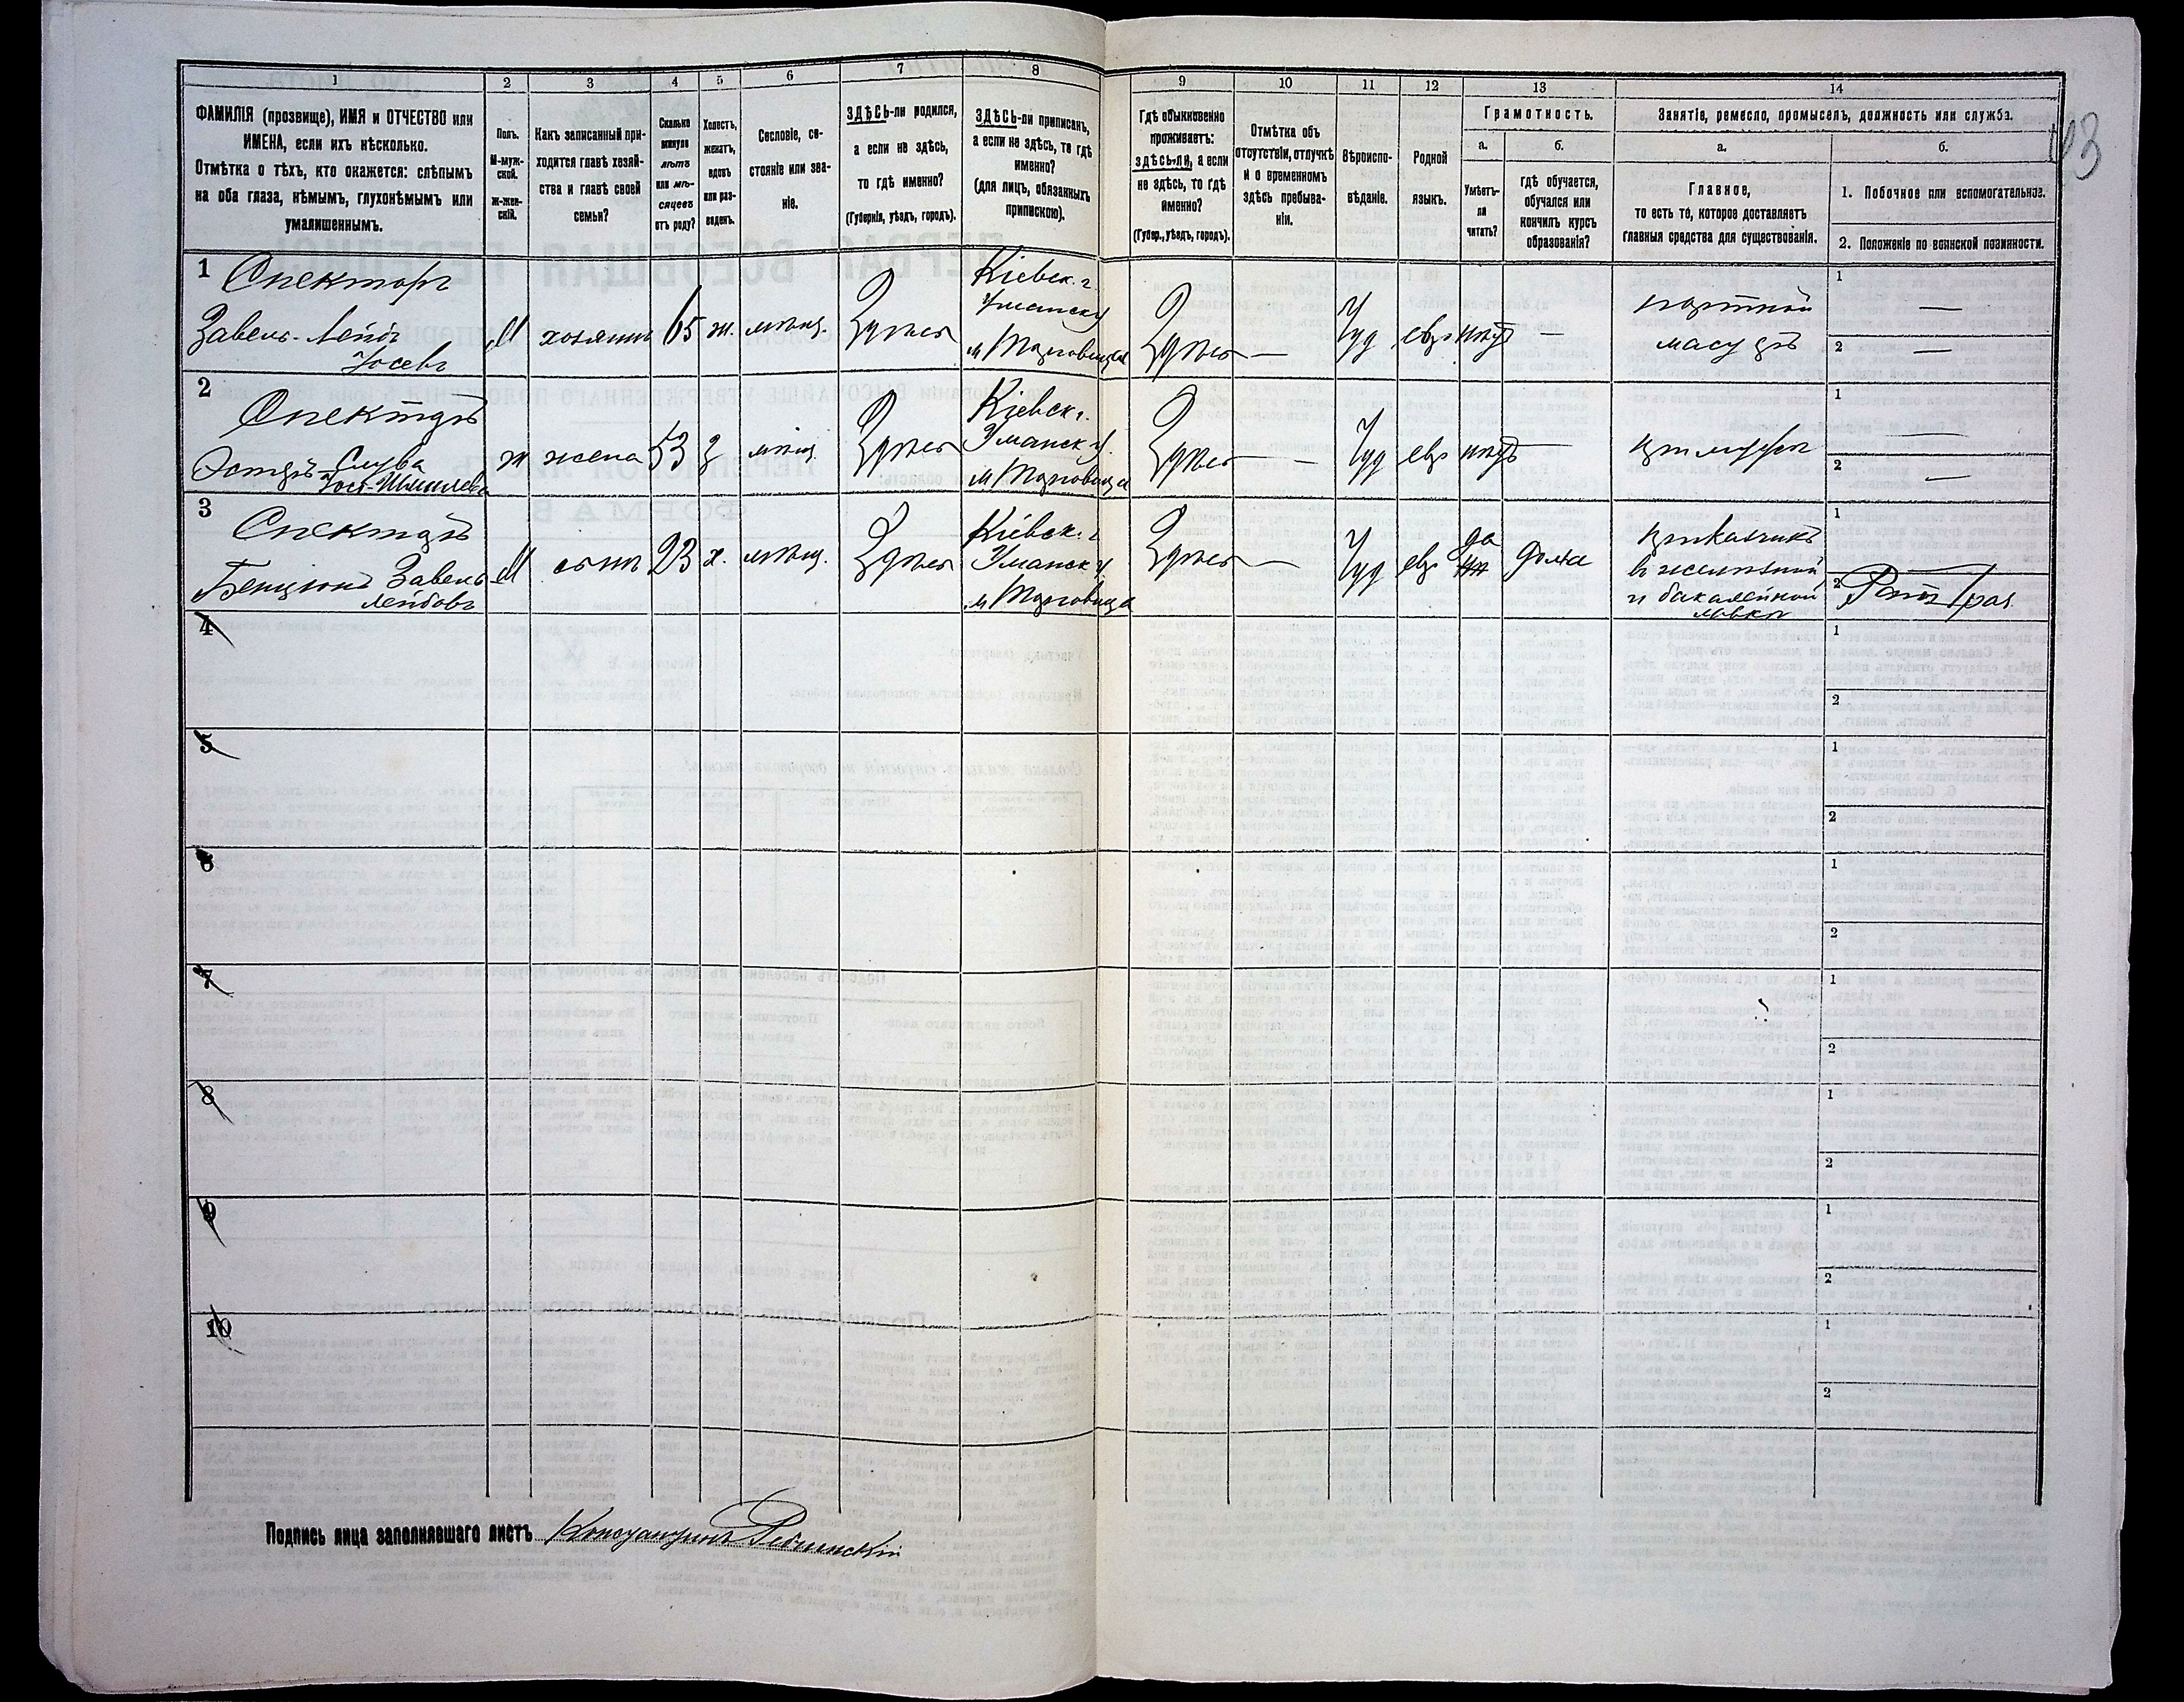 1
2
3
4
5
6
7
8
9
10
11
12
13
14
ФАМИЛІЯ (прозвище), ИМЯ и ОТЧЕСТВО или
ИМЕНА, если ихъ нѣсколько.
Отмѣтка о тѣхъ, кто окажется: слѣпымъ
на оба глаза, нѣмымъ, глухонѣмымъ или
умалишеннымъ.
Полъ.
М-муж-
ской.
Ж-жен-
скій.
Какъ записанный при-
ходится главѣ хозяй-
ства и главѣ своей
семьи?
Сколько
минуло
лѣтъ
или мѣ-
сяцевъ
отъ роду?
Холостъ,
женатъ,
вдовъ
или раз-
веденъ.
Сословіе, со-
стояніе или зва-
ніе.
ЗДѢСЬ-ли родился,
а если не здѣсь,
то гдѣ именно?
(Губернія, уѣздъ, городъ).
ЗДѢСЬ-ли приписанъ,
а если не здѣсь, то гдѣ
именно?
(для лицъ, обязанныхъ
припискою).
Гдѣ обыкновенно
проживаетъ:
здѣсь-ли, а если
не здѣсь, то гдѣ
именно?
(Губер., уѣздъ, городъ).
Отмѣтка объ
отсутствіи, отлучкѣ
и о временномъ
здѣсь пребыва-
ніи.
Вѣроиспо-
вѣданіе.
Родной
языкъ.
Грамотность.
а.
Умѣетъ-
ли
читать?
б.
гдѣ обучается,
обучался или
кончилъ курсъ
образованія?
Занятіе, ремесло, промыселъ, должность или служба.
а.
Главное,
то есть то, которое доставляетъ
главныя средства для существованія.
б.
1. Побочное или вспомогательное.
2. Положеніе по воинской повинности.
1 Спекторъ
Завель-Лейбъ
Іосевъ
М
хозяинъ
65
ж.
мѣщ.
Здѣсь
Кіевск. г.
Уманск у
м Торговица
Здѣсь
—
Іуд
евр
нѣтъ
—
портной
1
—
2
—
2
Спекторъ
Эстеръ-Слува
ж
жена
53
з
мѣщ
Здѣсь
Кіевск г.
Уманск у.
м Торговица
Здѣсь
—
Іуд
евр
нѣтъ
—
при мужѣ
1
—
2
—
3
Спекторъ
Бенціонъ Завель
Лейбовъ
М
сынъ
23
х.
мѣщ.
Здѣсь
Кіевск. г
Уманск у
м Торговица
Здѣсь
—
Іуд
евр
да
дома
прикащикъ
въ желѣзной
и бакалейной
лавкѣ
1
2
4
1
2
5
1
2
6
1
2
7
1
2
8
1
2
9
1
2
10
1
2
Подпись лица заполнявшаго листъ